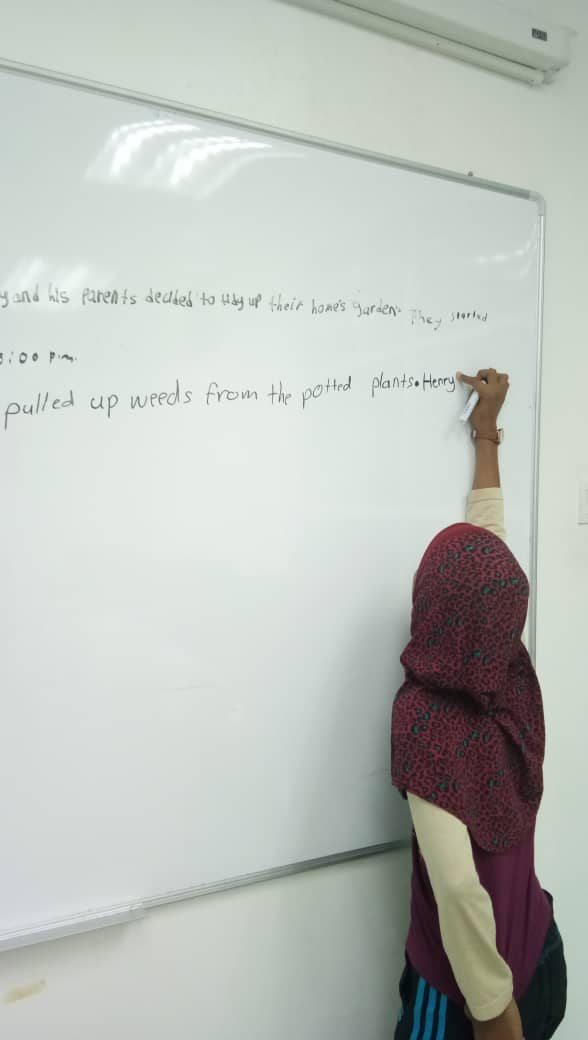 y and his parents decided to tidy up their home's garden. They started
3:00 p.m.
pulled up weeds from the potted plants. Henry